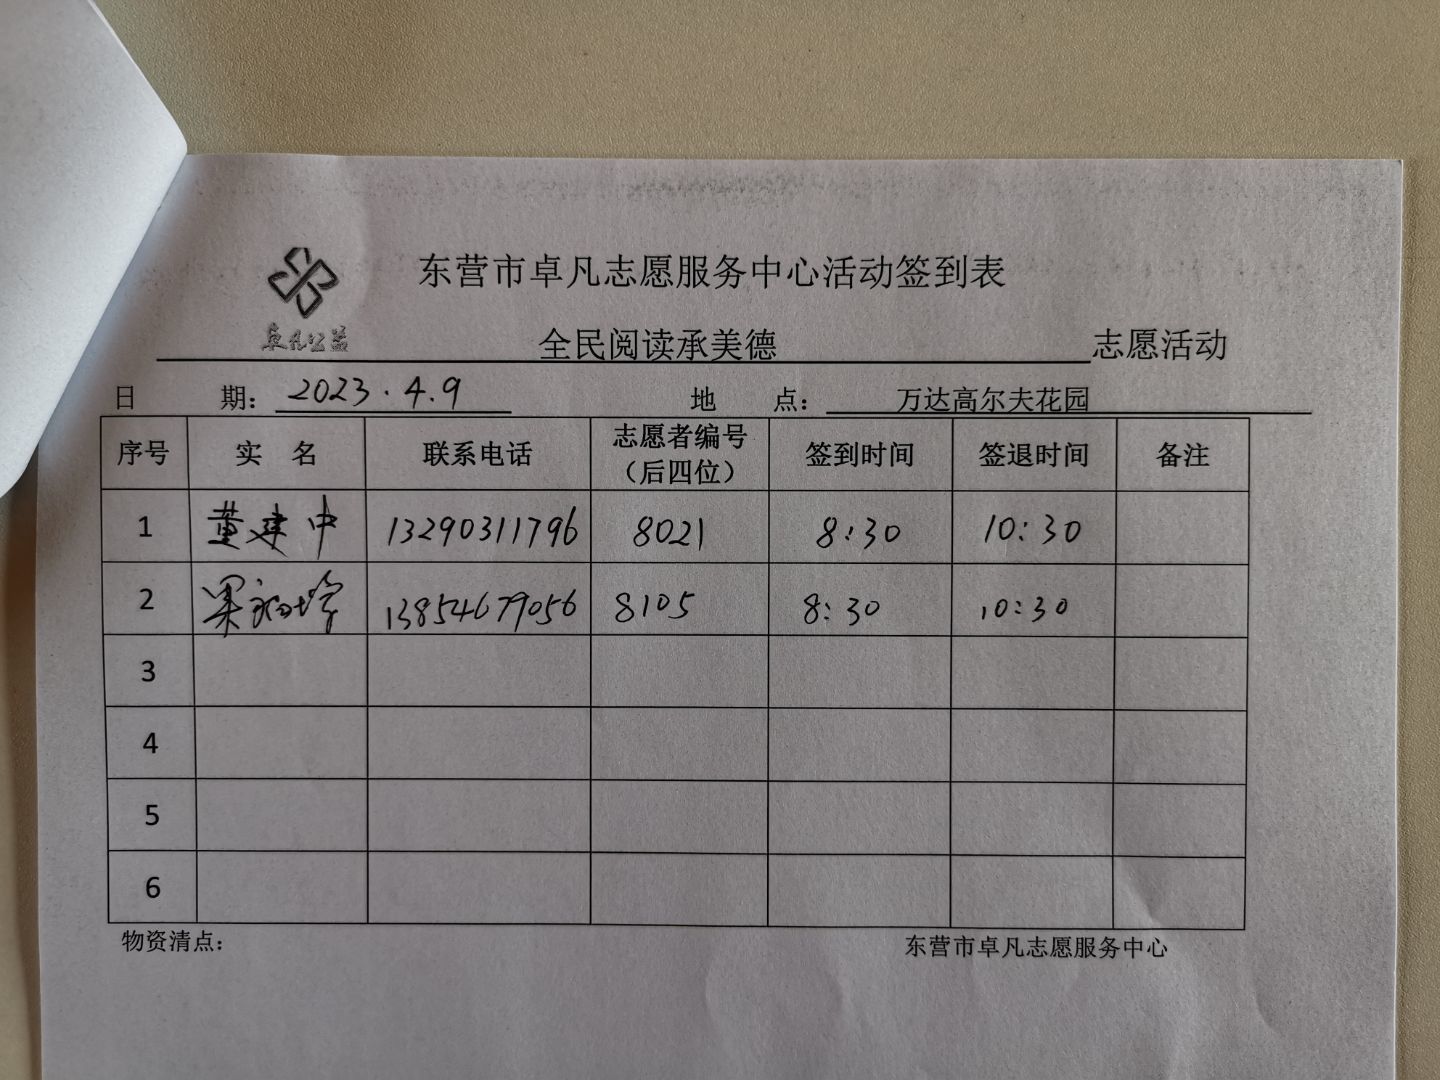 东营市卓凡志愿服务中心活动签到表
卓凡公益
全民阅读承美德 志愿活动
日 期：2023.4.9 地 点：万达高尔夫花园
序号 实 名 联系电话 志愿者编号（后四位） 签到时间 签退时间 备注
1 董建中 13290311796 8021 8:30 10:30
2 13854679056 8105 8:30 10:30
3
4
5
6
物资清点： 东营市卓凡志愿服务中心